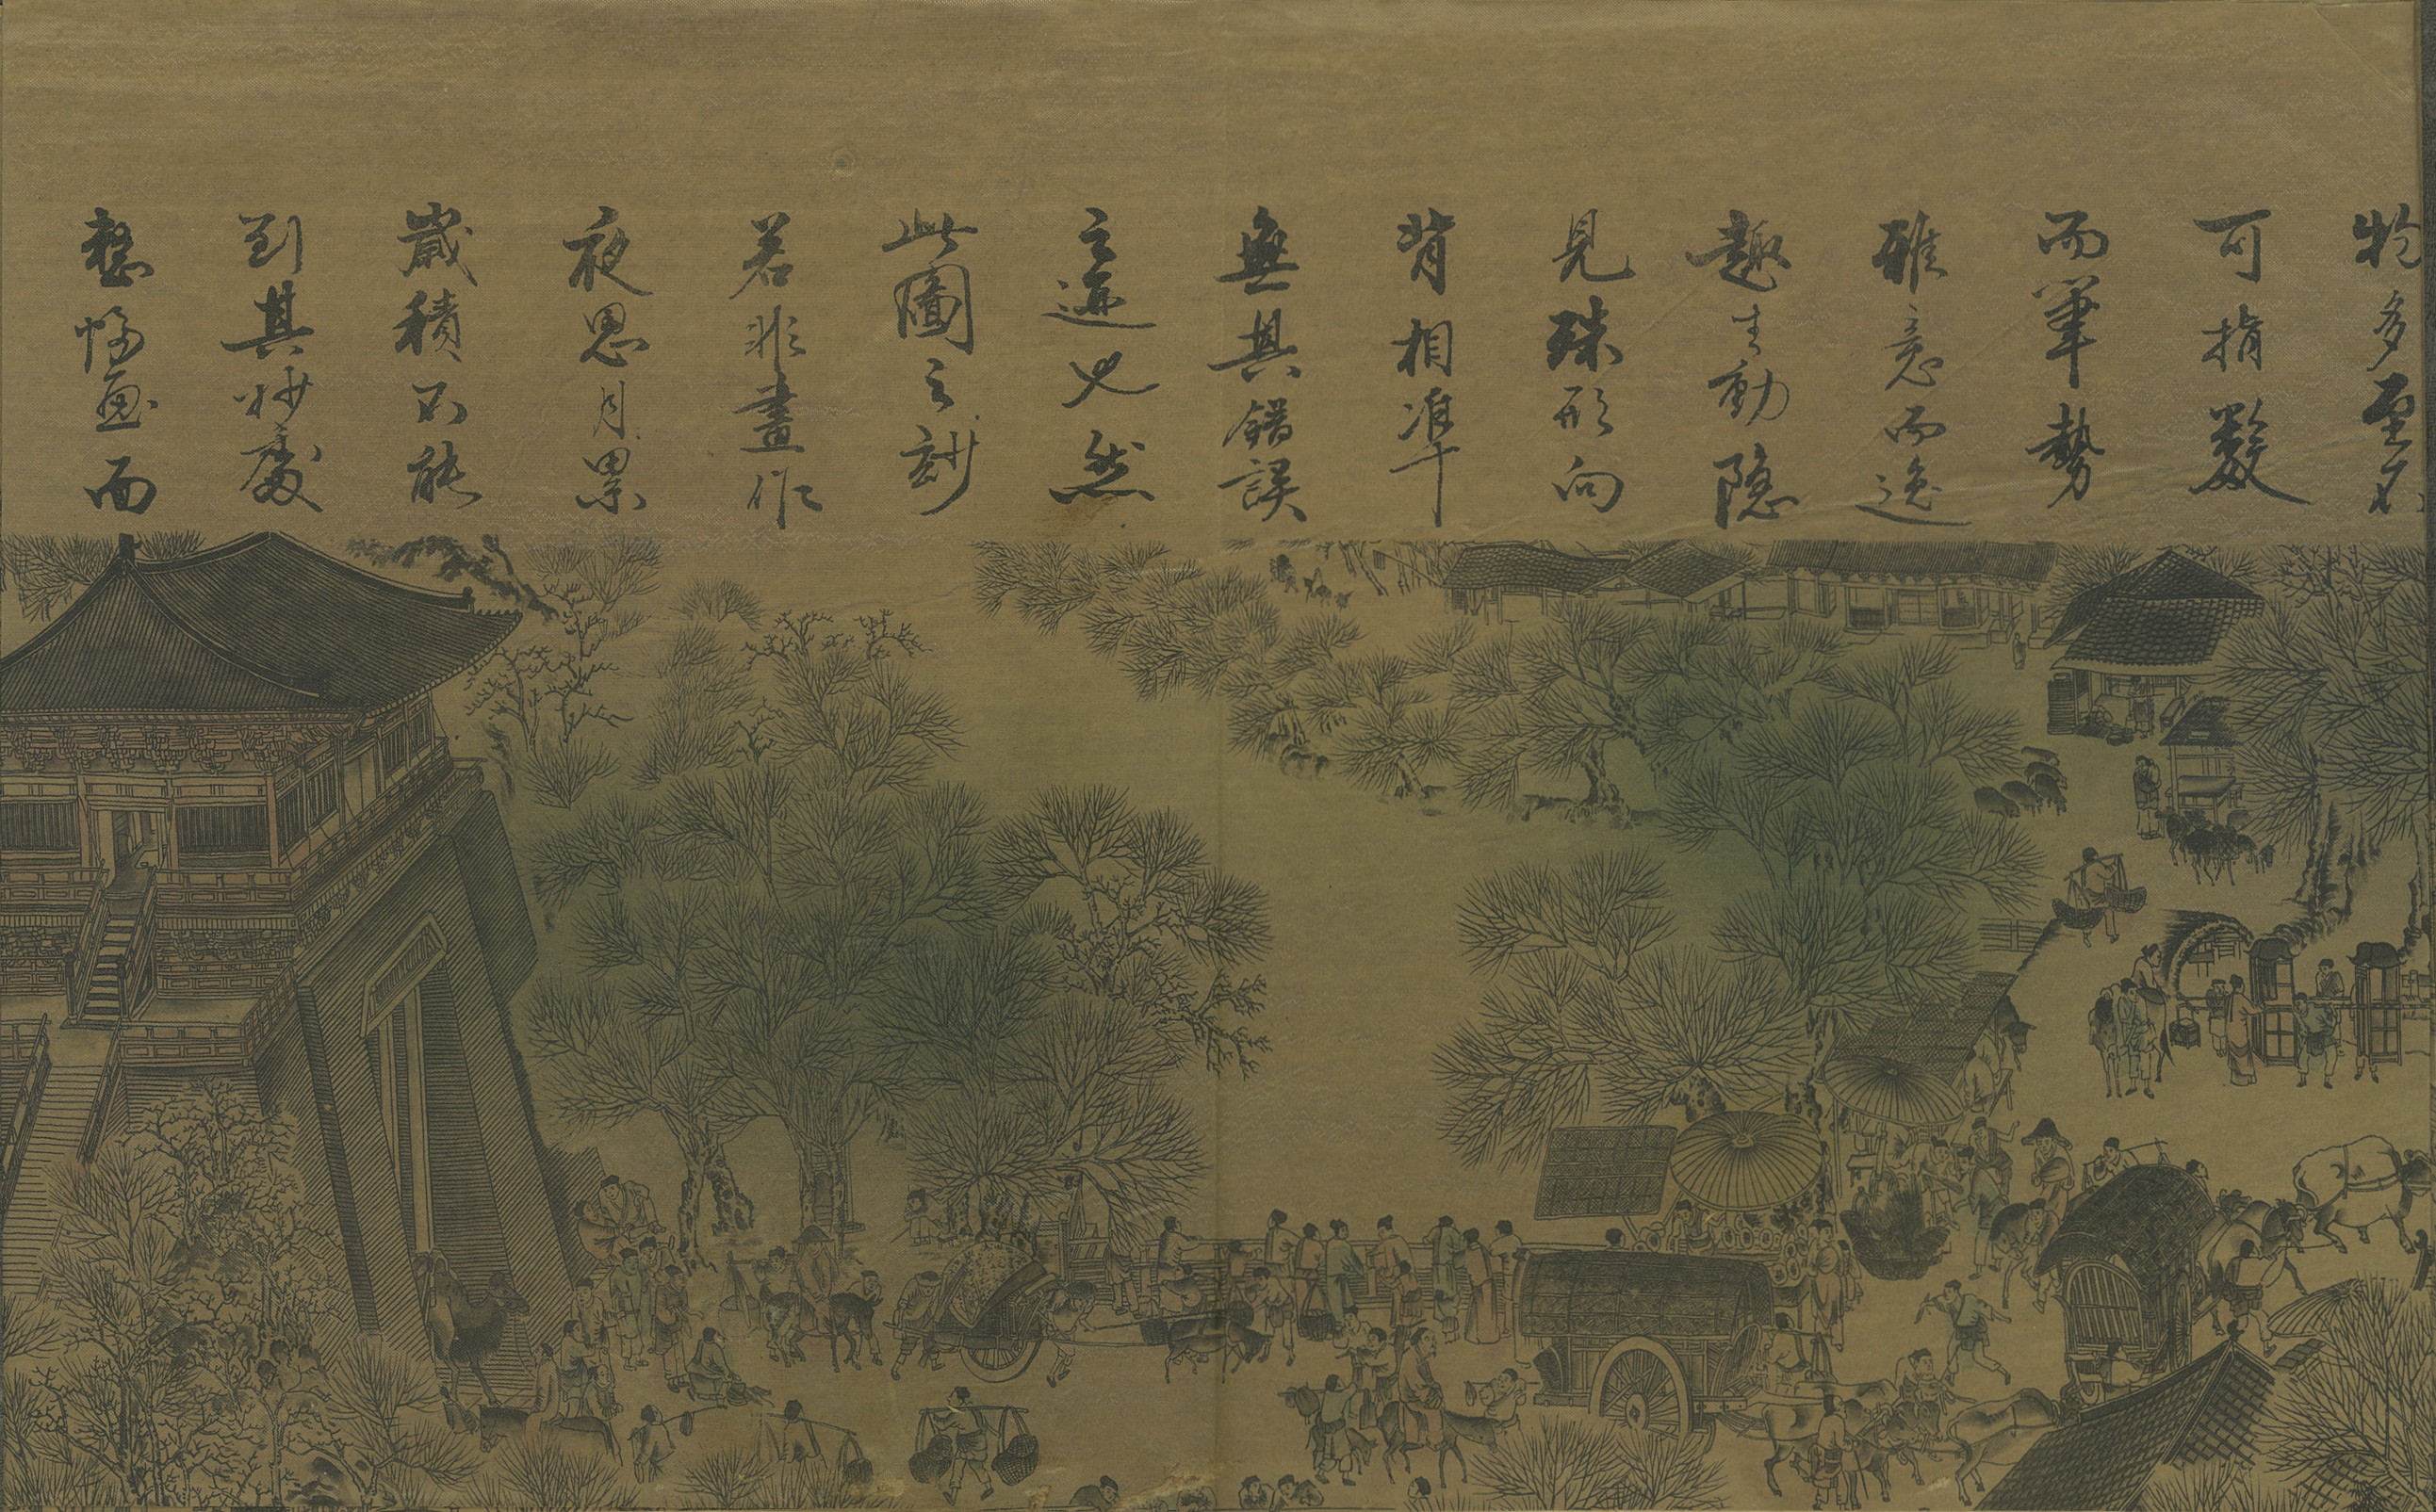 物多至不
可指數
而筆勢
雅意而逸
趣生動隐
見殊形向
背相準
無其錯誤
之迹必然
此圖之玅
若非畫作
夜思月累
歲積不能
到其妙處
整幅画而